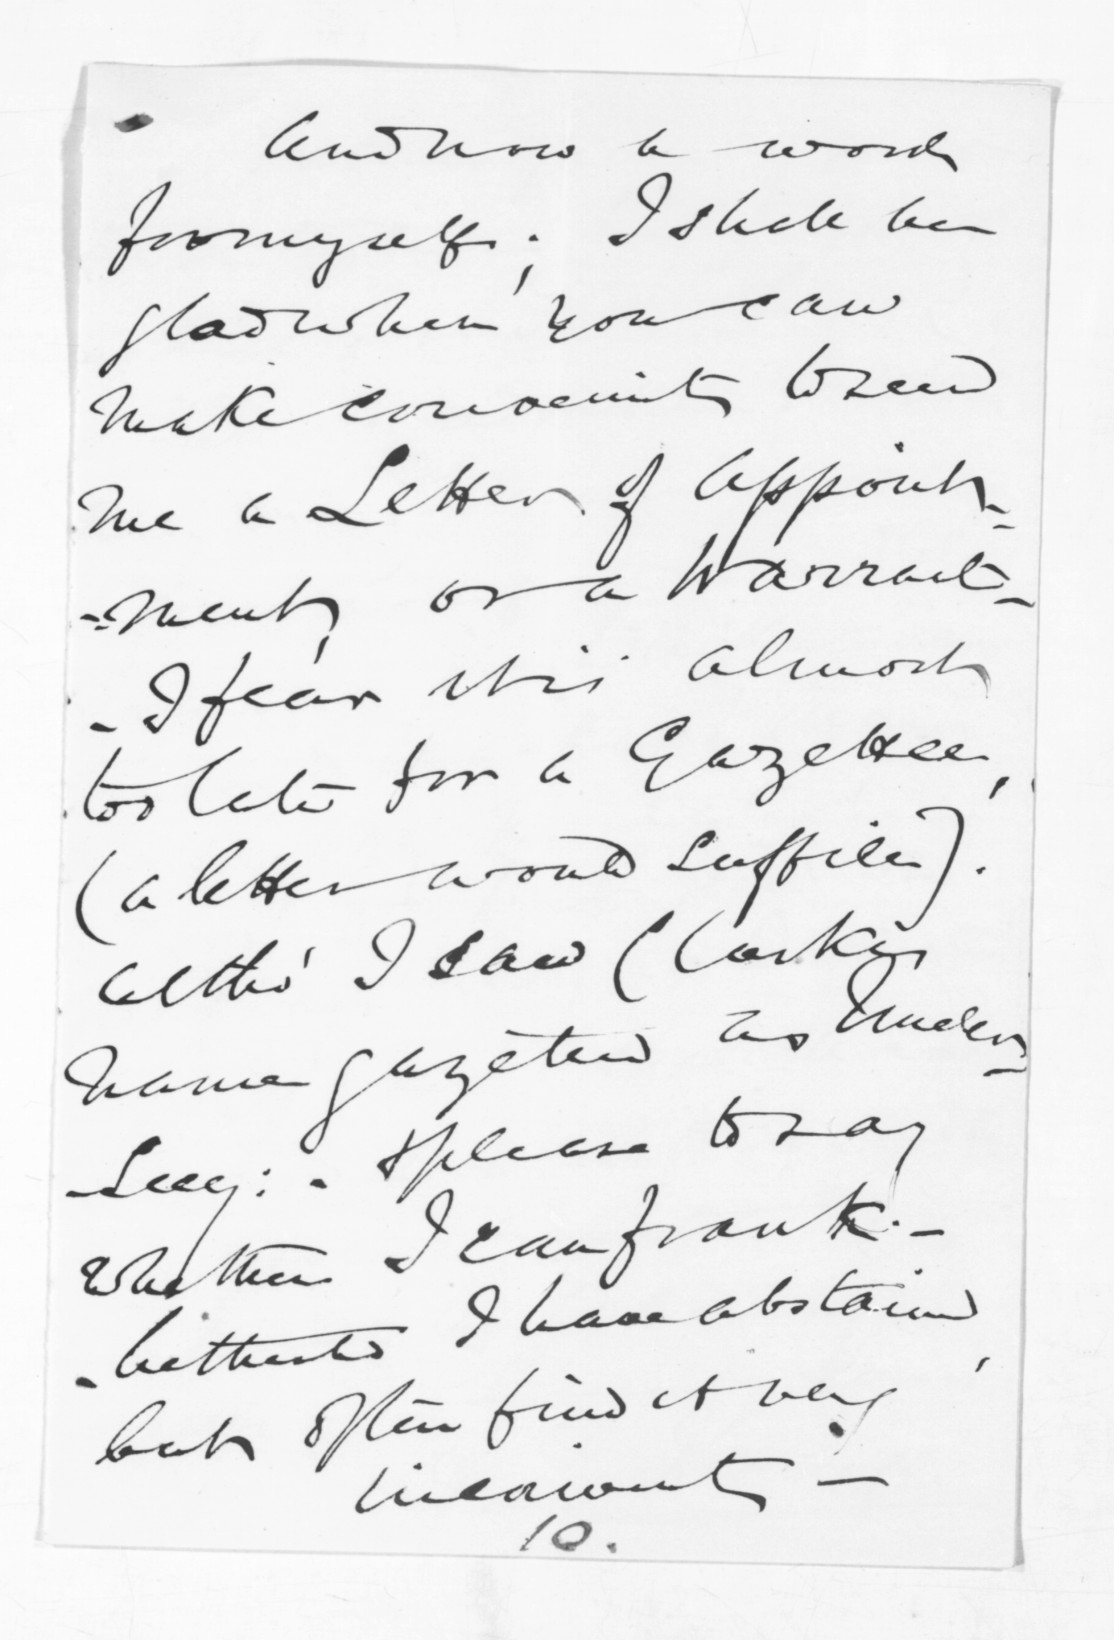 And now a word
for myself; I shall be
glad when you can
make convenient to send
me a Letter of Appoint-
-ment, or a Warrant-
- I fear it is almost
too late for a Gazette,
(a letter would suffice).
altho' I saw Clarke's
name gazetted as Under
-Secy: - & please to say
whether I can frank -
- hitherto I have abstained,
but often find it very
inconvenient -
10.